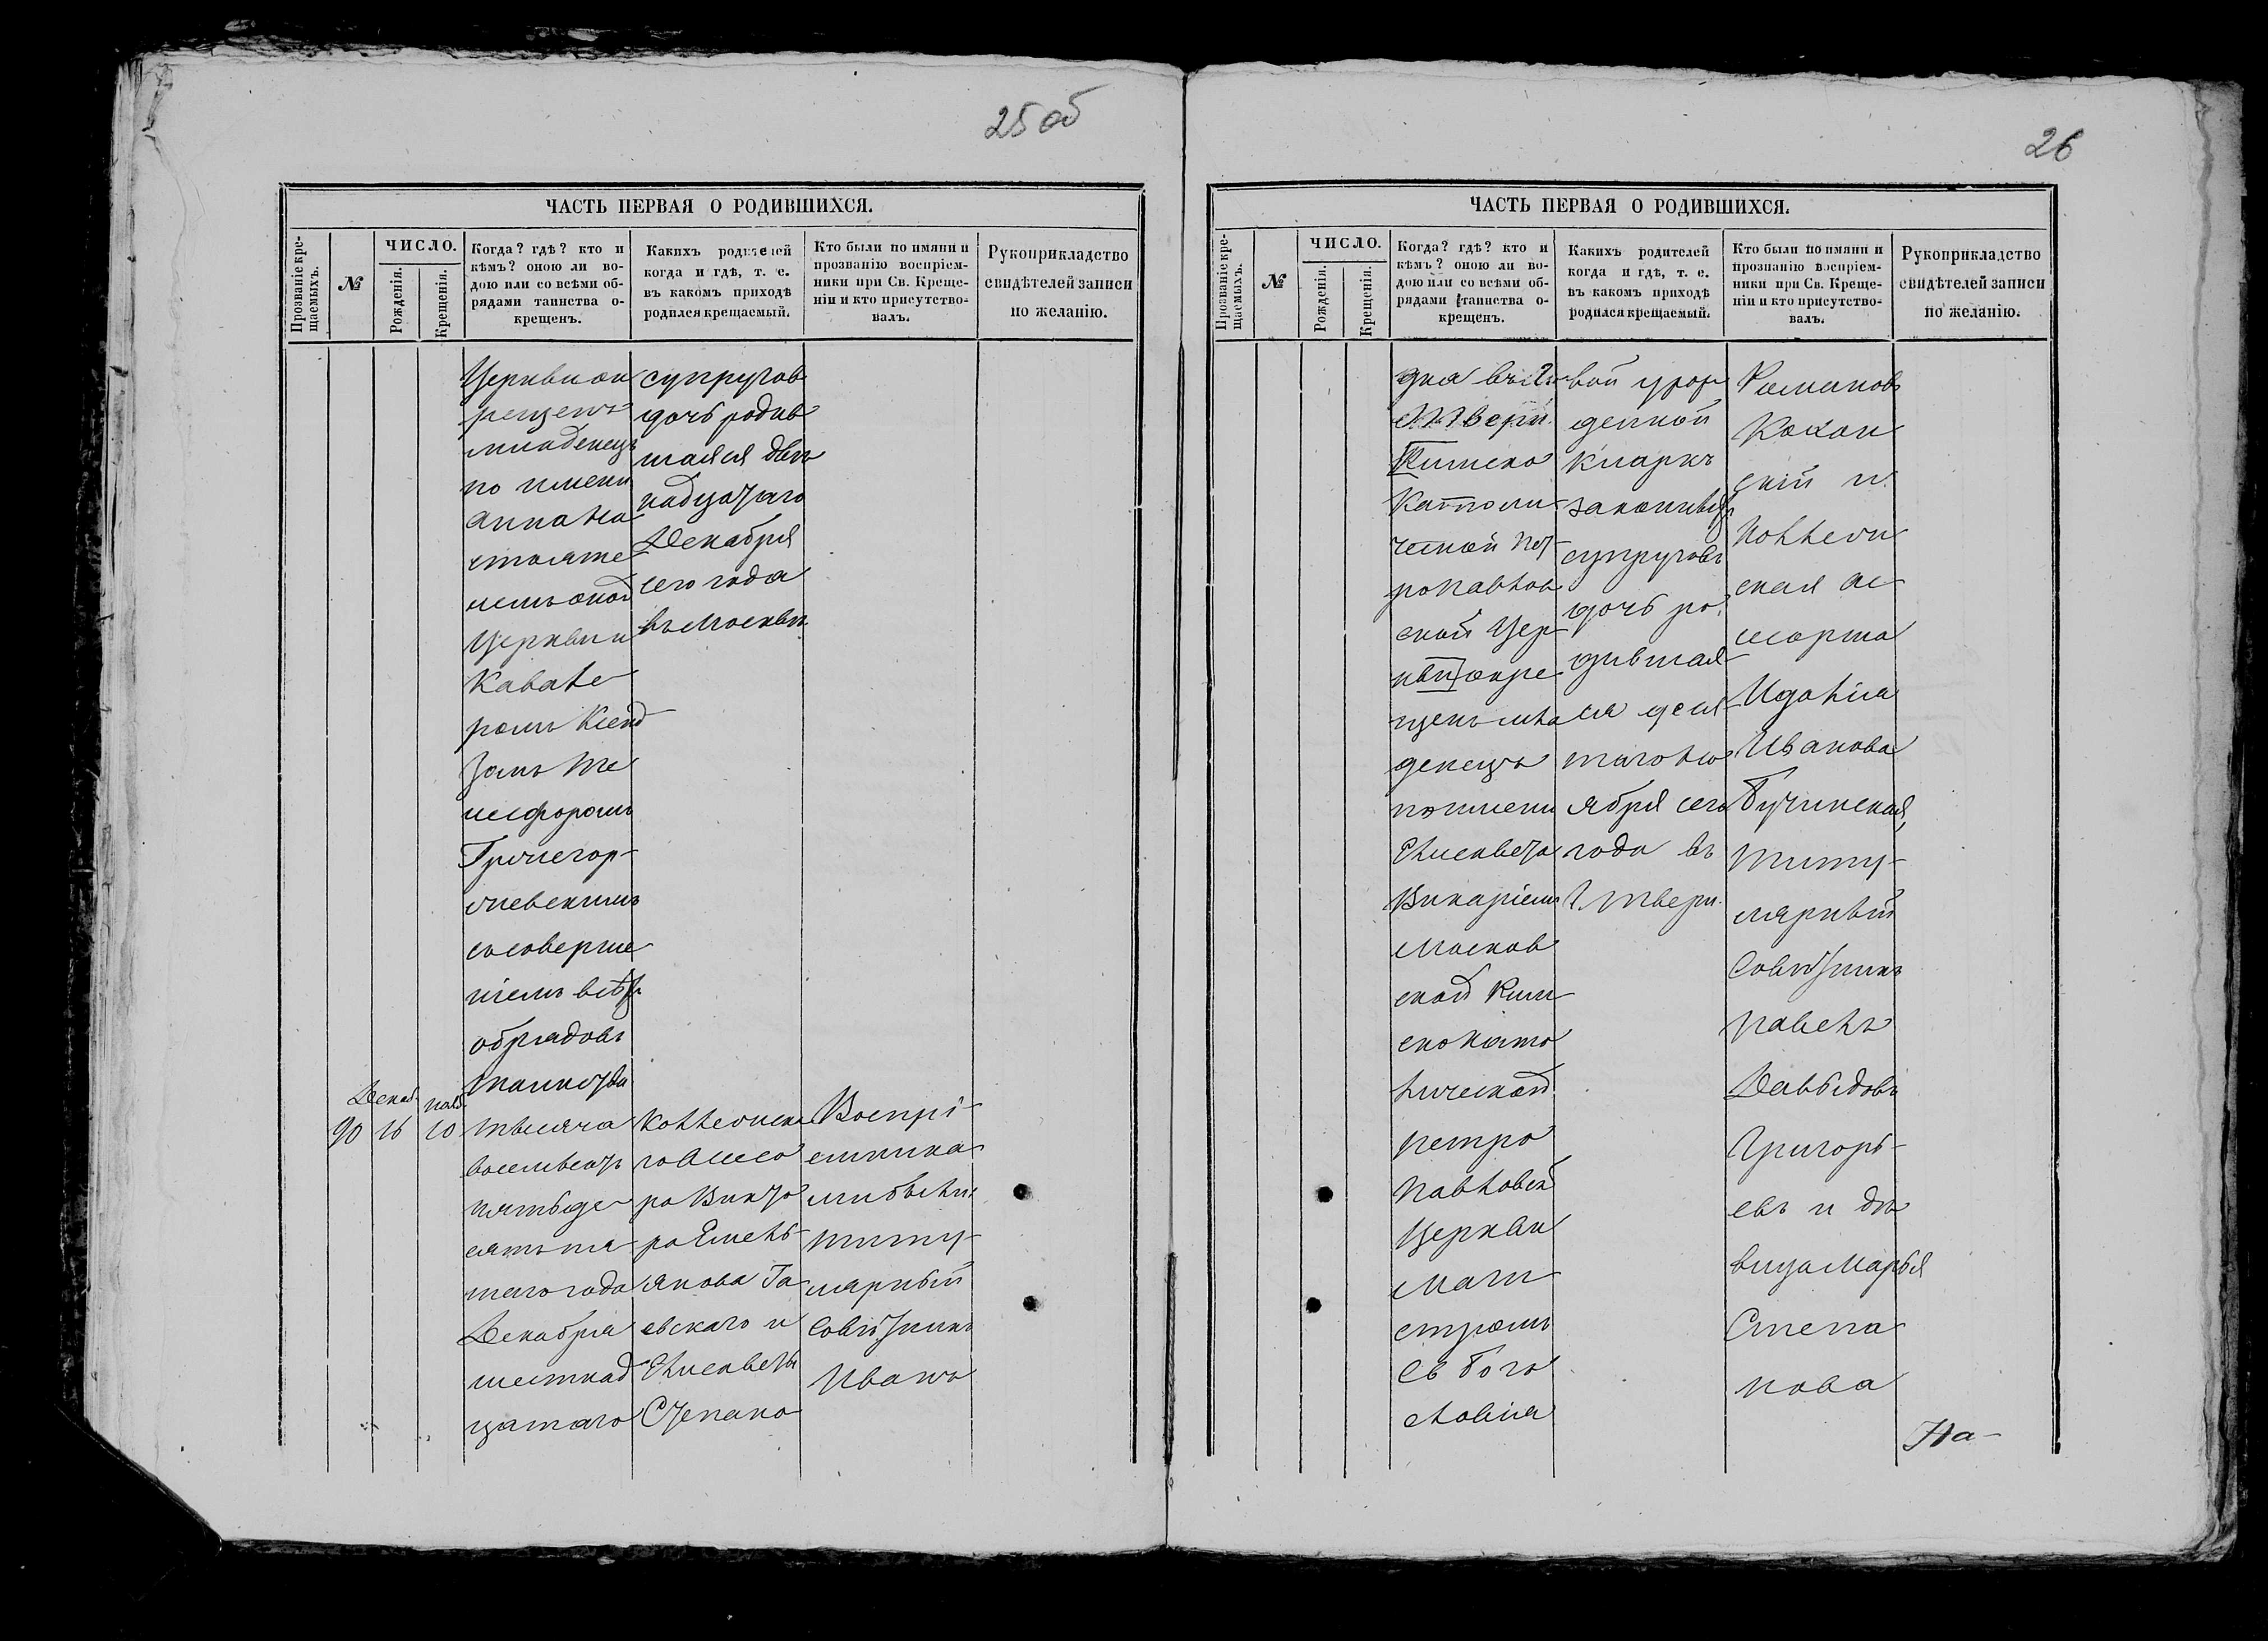 25 об
ЧАСТЬ ПЕРВАЯ О РОДИВШИХСЯ.
Прозваніе кре-
щаемыхъ.
№
ЧИСЛО.
Рожденія.
Крещенія.
Когда? гдѣ? кто и
кѣмъ? оною ли во-
дою или со всѣми об-
рядами таинства о-
крещенъ.
Какихъ родителей
когда и гдѣ, т. е.
въ какомъ приходѣ
родился крещаемый.
Кто были по имяни и
прозванію воспріем-
ники при Св. Креще-
ніи и кто присутство-
валъ.
Рукоприкладство
свидѣтелей записи
по желанію.
Церкви ок
рещенъ
младенецъ
по имени
Анна На
стояте
лемъ оной
Церкви и
Кавале
ромъ Ксенд
зомъ
Гриегор
жевскимъ
съ соверше
ніемъ всѣхъ
обрядовъ
таинства
супруговъ
дочь родив
шаяся двѣ
надцатаго
Декабря
сего года
въ Москвѣ.
Декаб.
нояб.
90
16
10
тысяча
восемьсотъ
пятьде
сятъ пя
таго года
Декабря
шестнад
цатаго
Коллежска
го Ассесо
ра Викто
ра Емель
янова Га
евскаго и
Елисаветы
Степано
Воспрі
емника
ми были
титу
лярный
Совѣтникъ
Иванъ
26
ЧАСТЬ ПЕРВАЯ О РОДИВШИХСЯ.
Прозваніе кре-
щаемыхъ.
№
ЧИСЛО.
Рожденія.
Крещенія.
Когда? гдѣ? кто и
кѣмъ? оною ли во-
дою или со всѣми об-
рядами таинства о-
крещенъ.
Какихъ родителей
когда и гдѣ, т. е.
въ какомъ приходѣ
родился крещаемый.
Кто были по имяни и
прозванію воспріем-
ники при Св. Креще-
ніи и кто присутство-
валъ.
Рукоприкладство
свидѣтелей записи
по желанію.
дня въ г.
Твери
Римско
Католи
ческой Пет
ропавлов
ской Цер
кви окре
щенъ мла
денецъ
по имени
Елисавета
Викаріемъ
Москов
ской Рим
ско като
лической
Петро
Павловской
Церкви
Маги
стромъ
Св. Бого
словія
вой урож
денной
Кларкъ
законныхъ
супруговъ
дочь ро
дившая
ся деся
таго Но
ября сего
года въ
г. Твери.
Романовъ
скій и
Коллеж
ская Ас
сесорша
Иванова
Бучинская,
титу
лярный
Совѣтникъ
Павелъ
Давыдовъ
Григорь
евъ и дѣ
вица Марья
Степа
нова
На-